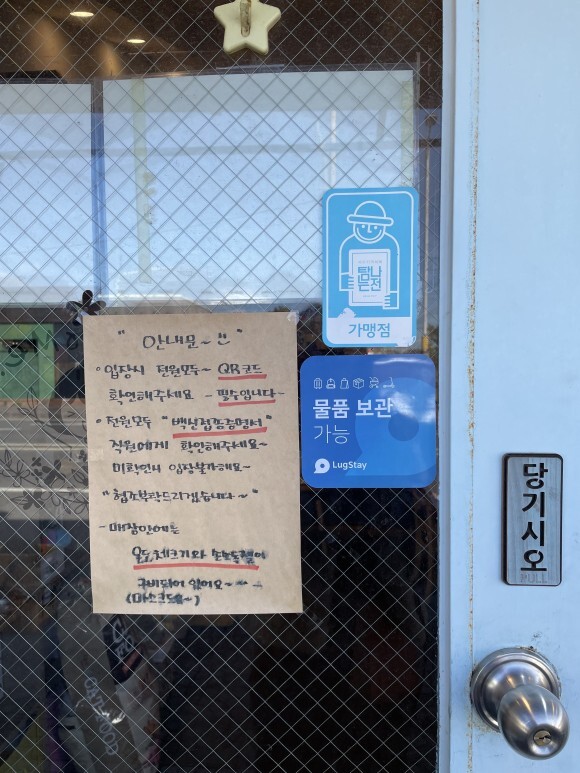 "안내문~"
◦입장시 전원모두~ QR코드
확인해주세요 - 필수입니다~
◦전원모두 "백신접종증명서"
직원에게 확인해주세요~
미확인시 입장불가해요~
"협조부탁드리겠습니다~"
-매장안에는
온도체크기와 손소독제이
구비되어 있어요~
(마스크도요~)
탐나
는전
가맹점
물품 보관
가능
LugStay
당기시오
PULL